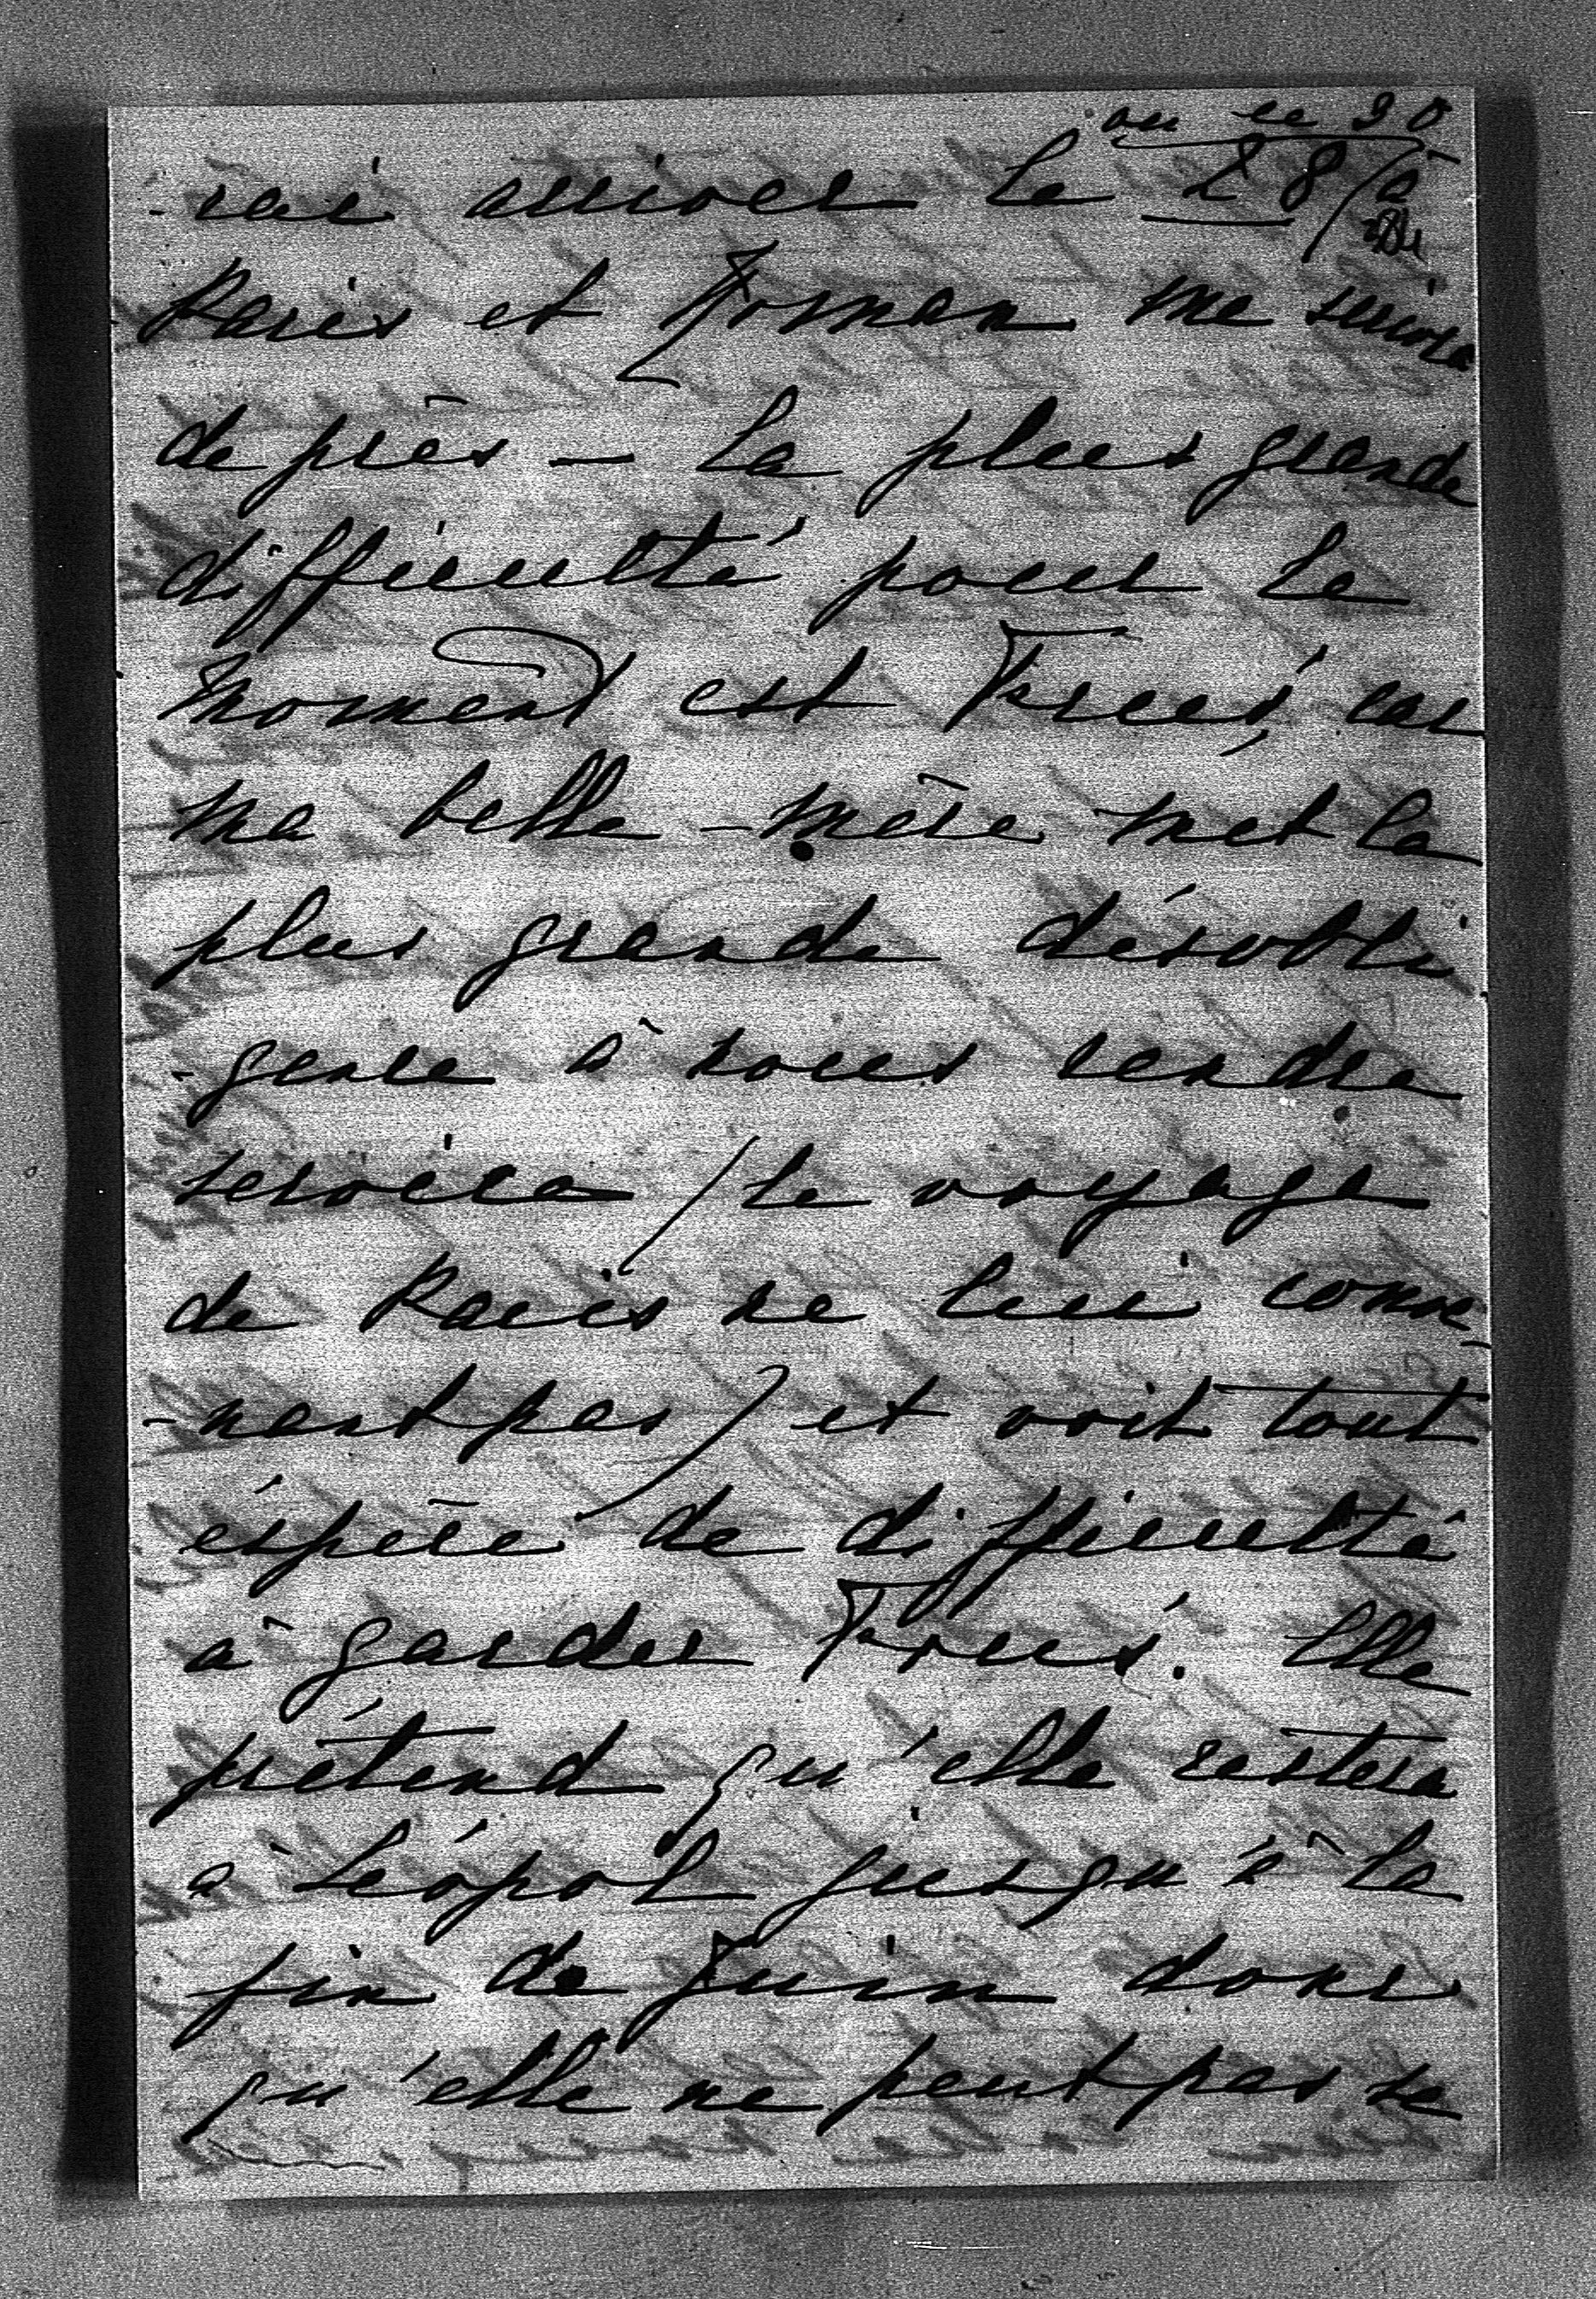 ou le 30
-rai arriver le 28/à
Paris et Zoman me suivra
de près – La plus grande
difficulté pour le
moment est Froués, car
ma belle-mère met la
plus grande désobli
-gence à nous rendre
service / le voyage
de Paris ne lui conve-
-nant pas / et voit tout
éspère de difficulté
à garder Froués. Elle
prétend qu'elle restera
à Léopol jusqu'à la
fin de Juin donc
qu'elle ne peut pas se